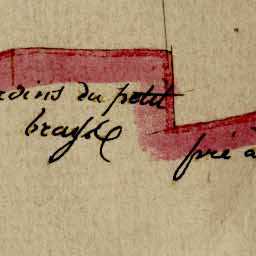 rdins du petit
pré à